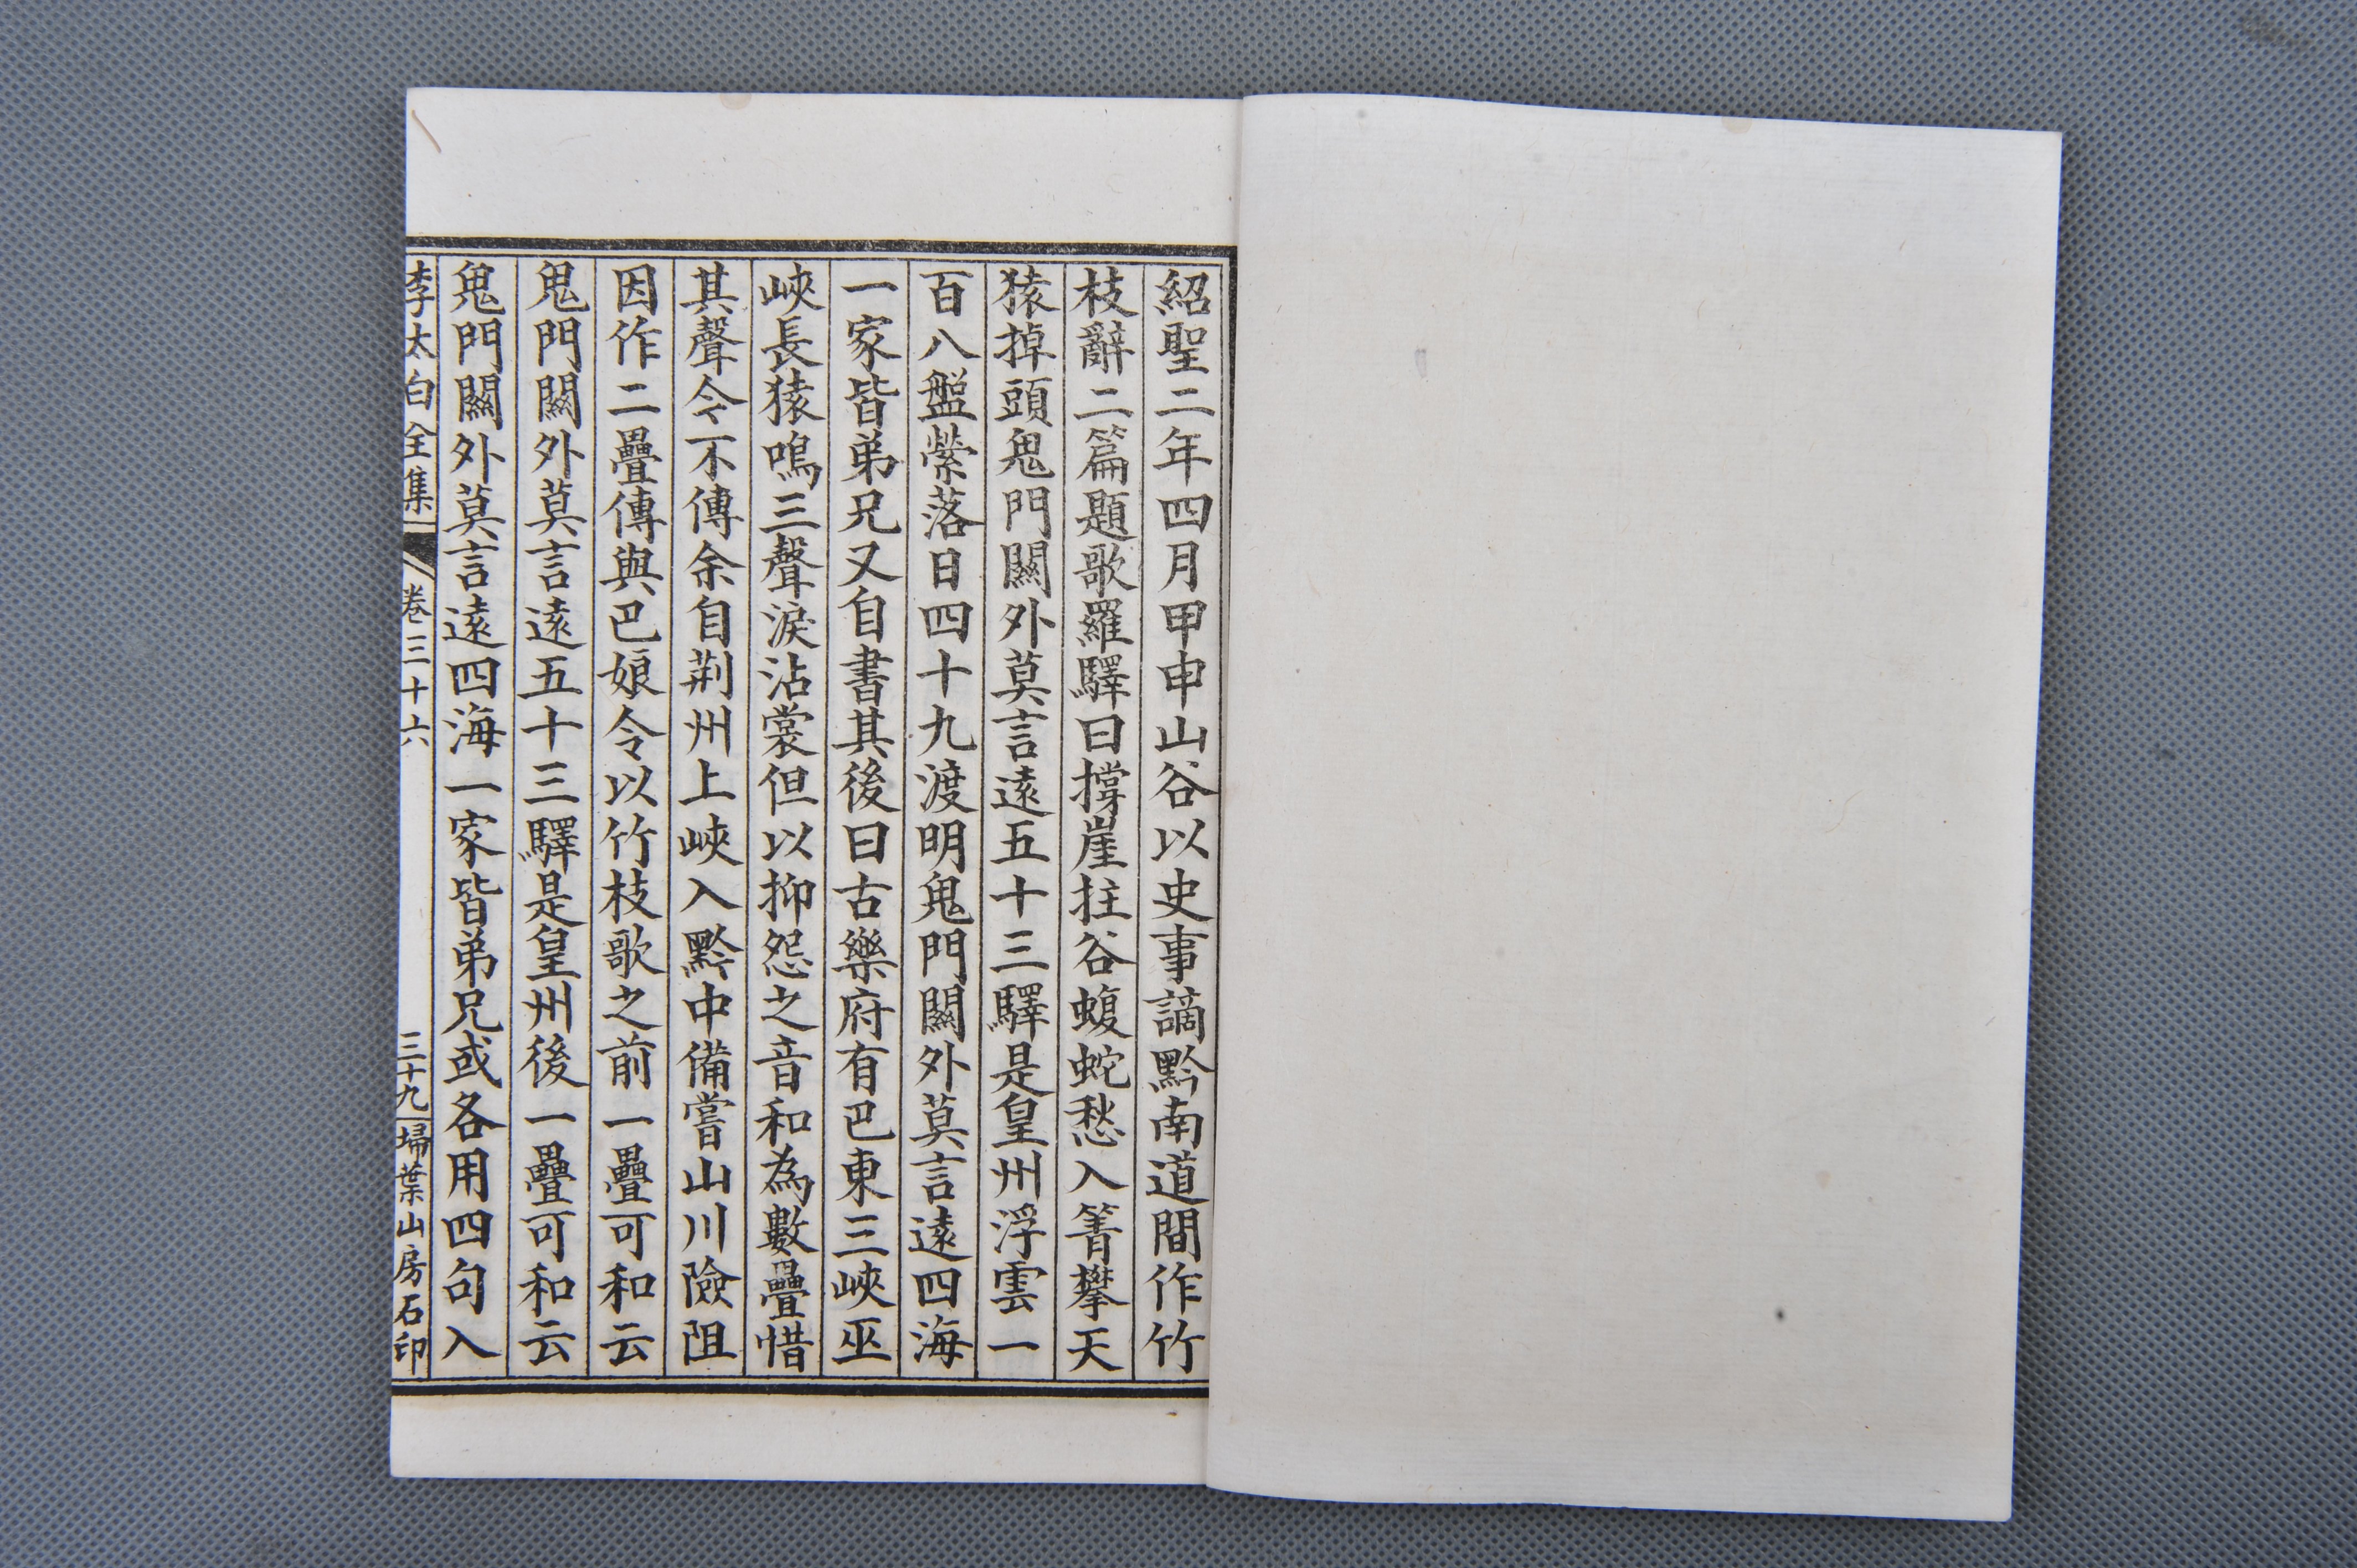 紹聖二年四月甲申山谷以史事謫黔南道間作竹
枝辭二篇題歌羅驛曰撐崖拄谷蝮蛇愁入箐攀天
猿掉頭鬼門關外莫言遠五十三驛是皇州浮雲一
百八盤縈落日四十九渡明鬼門關外莫言遠四海
一家皆弟兄又自書其後曰古樂府有巴東三峽巫
峽長猿鳴三聲淚沾裳但以抑怨之音和為數疊惜
其聲今不傳余自荆州上峽入黔中備嘗山川險阻
因作二疊傳與巴娘令以竹枝歌之前一疊可和云
鬼門關外莫言遠五十三驛是皇州後一疊可和云
鬼門關外莫言遠四海一家皆弟兄或各用四句入
李太白全集 卷三十六 三十九 埽葉山房石印